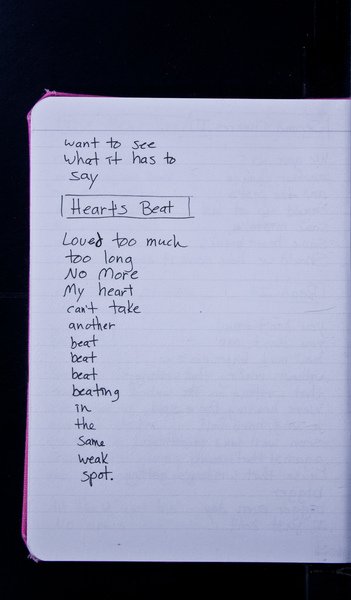 want to see
what it has to
say
Heart's Beat
Loved too much
too long
No More
My heart
can't take
another
beat
beat
beat
beating
in
the
same
weak
spot.